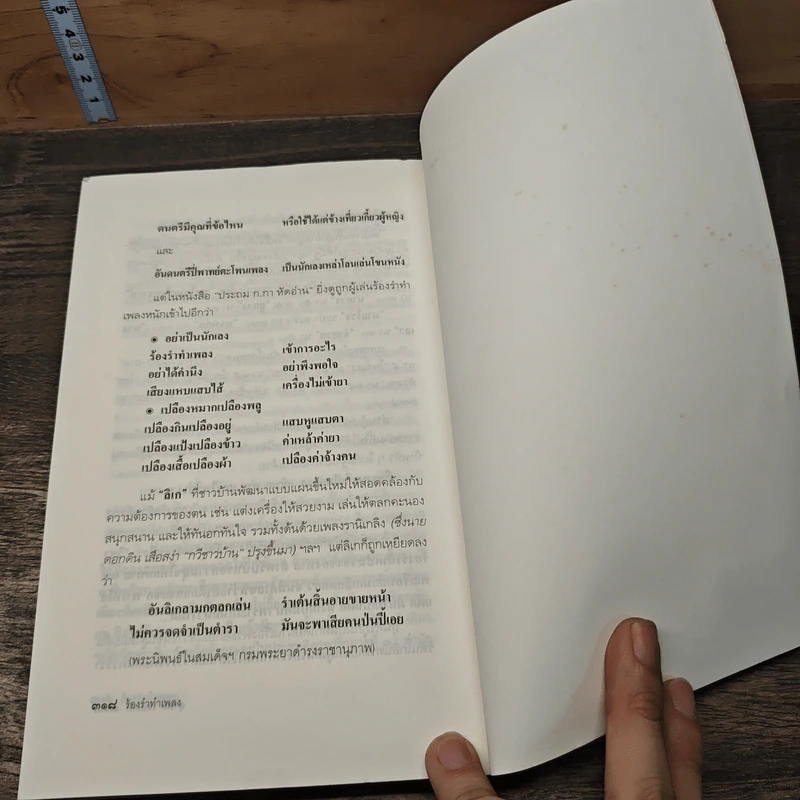 5
4
3
2
1
ดนตรีมีคุณที่ข้อไหน หรือใช้ได้แต่ข้างเที่ยวเกี้ยวผู้หญิง
และ
อันดนตรีปี่พาทย์ตะโพนเพลง เป็นนักเลงเหล่าโลนเล่นโขนหนัง
แต่ในหนังสือ "ประถม ก.กา หัดอ่าน" ยิ่งดูถูกผู้เล่นร้องรำทำ
เพลงหนักเข้าไปอีกว่า
๏ อย่าเป็นนักเลง
ร้องรำทำเพลง เข้าการอะไร
อย่าได้คำนึง อย่าพึงพอใจ
เสียงแหบแสบไส้ เครื่องไม่เข้ายา
๏ เปลืองหมากเปลืองพลู
เปลืองกินเปลืองอยู่ แสบหูแสบตา
เปลืองแป้งเปลืองข้าว ค่าเหล้าค่ายา
เปลืองเสื้อเปลืองผ้า เปลืองค่าจ้างคน
แม้ "ลิเก" ที่ชาวบ้านพัฒนาแบบแผนขึ้นใหม่ให้สอดคล้องกับ
ความต้องการของตน เช่น แต่งเครื่องให้สวยงาม เล่นให้ตลกคะนอง
สนุกสนาน และให้ทันอกทันใจ รวมทั้งต้นด้วยเพลงรานิเกลิง (ซึ่งนาย
ดอกดิน เสือสง่า "กวีชาวบ้าน" ปรุงขึ้นมา) ฯลฯ แต่ลิเกก็ถูกเหยียดลง
ว่า
อันลิเกลามกตลกเล่น รำเต้นสิ้นอายขายหน้า
ไม่ควรจดจำเป็นตำรา มันจะพาเสียคนป่นปี้เอย
(พระนิพนธ์ในสมเด็จฯ กรมพระยาดำรงราชานุภาพ)
๓๑๘ ร้องรำทำเพลง